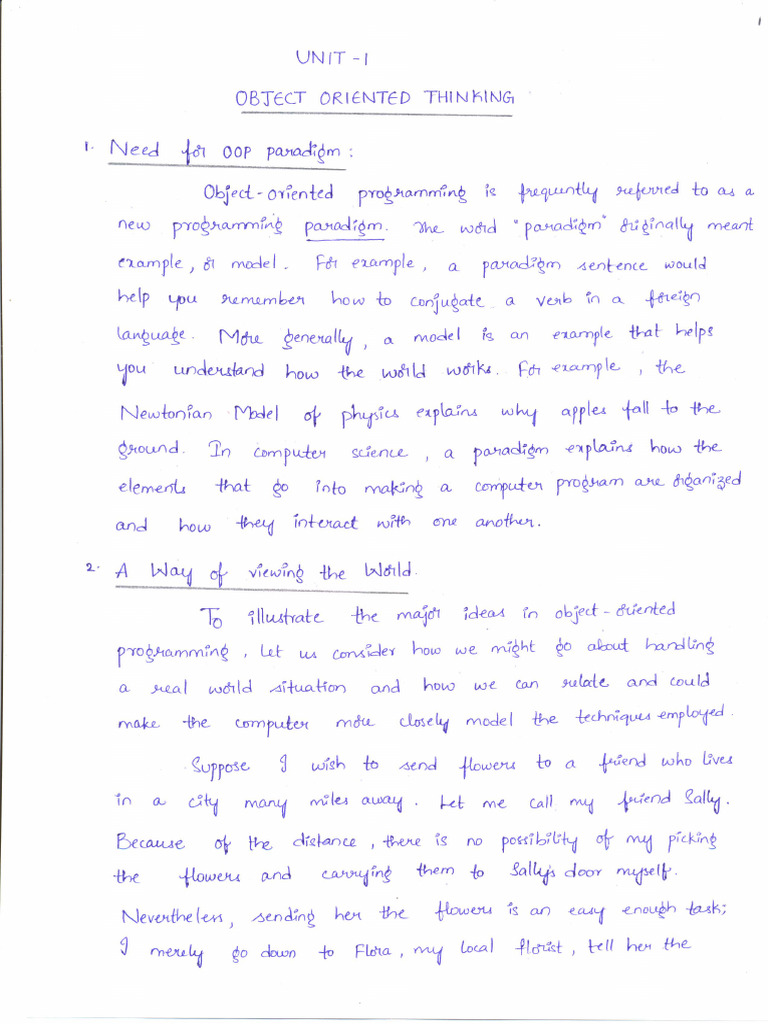 1
UNIT -1
OBJECT ORIENTED THINKING
1. Need for OOP paradigm :
Object-oriented programming is frequently referred to as a
new programming paradigm. The word "paradigm" originally meant
example, or model. For example, a paradigm sentence would
help you remember how to conjugate a verb in a foreign
language. More generally, a model is an example that helps
you understand how the world works. For example, the
Newtonian Model of physics explains why apples fall to the
ground. In computer science, a paradigm explains how the
elements that go into making a computer program are organized
and how they interact with one another.
2. A Way of viewing the World.
To illustrate the major ideas in object-oriented
programming, let us consider how we might go about handling
a real world situation and how we can relate and could
make the computer more closely model the techniques employed.
Suppose I wish to send flowers to a friend who lives
in a city many miles away. Let me call my friend Sally.
Because of the distance, there is no possibility of my picking
the flowers and carrying them to Sally's door myself.
Nevertheless, sending her the flowers is an easy enough task;
I merely go down to Flora, my local florist, tell her the